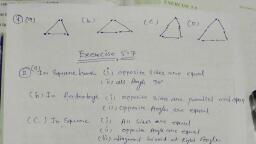 (a) (b) (c) (d)
Exercise 5.7
(a) In Square (i) opposite sides are equal
(ii) all Angle 90°
(b) In (i) opposite sides are parallel and
(ii) opposite Angles are equal
(c) In Square (i) All sides are equal
(ii) opposite Angle are equal
(iii) diagonal bisect at Right Angles